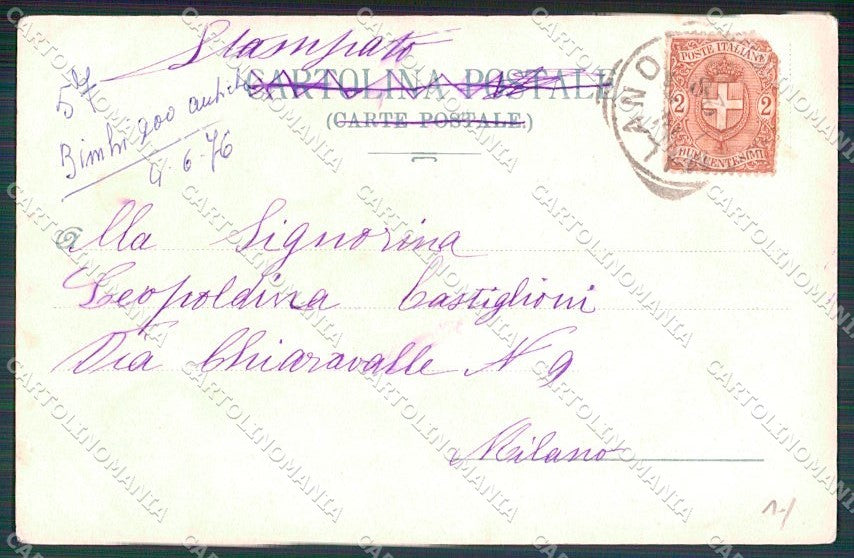 Stampato
CARTOLINA POSTALE
(CARTE POSTALE.)
57
Bimbi 900
4-6-76
POSTE ITALIANE
2 2
DUE CENTESIMI
LANO
Alla Signorina
Leopoldina Castiglioni
Via Chiaravalle N 9
Milano
CARTOLINOMANIA